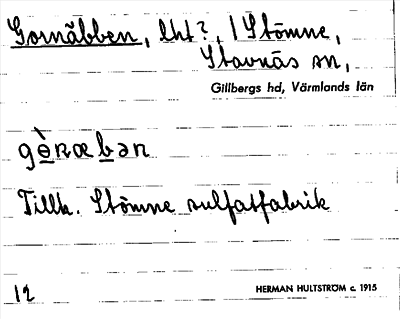 Gornäbben, lht?, / Stömne,
Stavnäs sn,
Gillbergs hd, Värmlands län
gɵ̀næbən
Tillh. Stömne sulfatfabrik
12 HERMAN HULTSTRÖM c. 1915